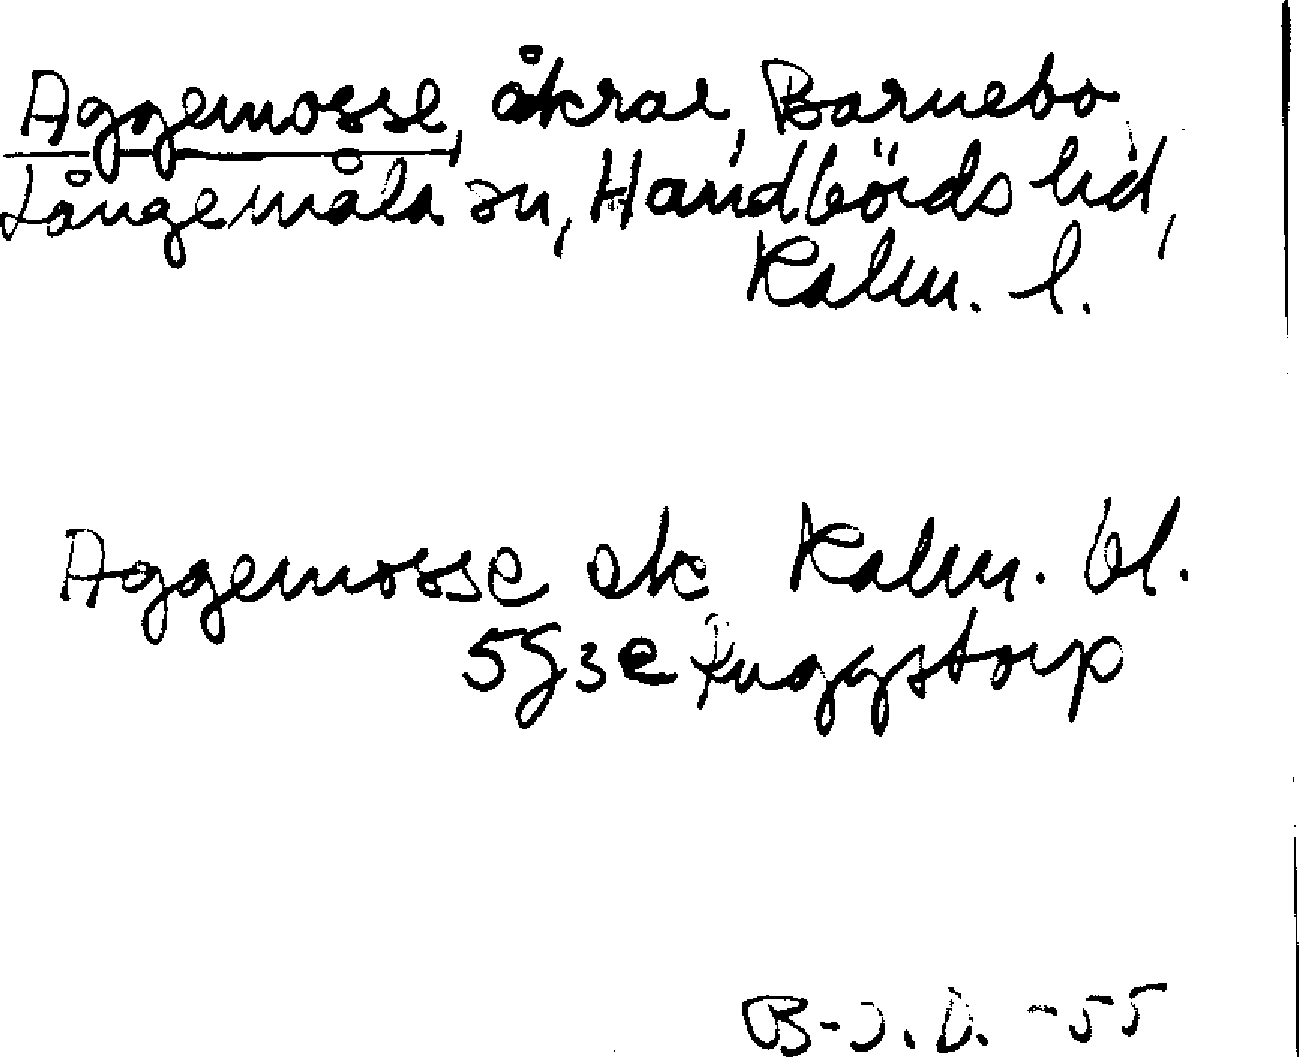 Aggemosse, åkrar, Barnebo,
Långemåla sn, Handbörds hd,
Kalm. l.
Aggemosse ek Kalm. bl.
5g3e Ruggstorp
B-J.D. -55